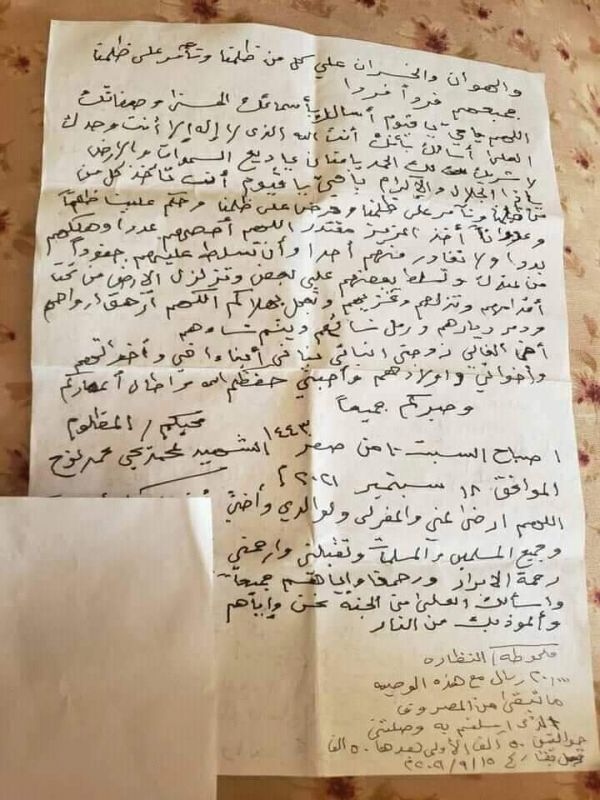 والهوان والخسران على كل من ظلمنا وتآمر على ظلمنا
جميعهم فرداً فردا
اللهم يا حي يا قيوم أسألك بأسمائك الحسنى وصفاتك
العلى أسألك بأنك أنت الله الذي لا إله إلا أنت وحدك
لا شريك لك لك الحمد يا منان يا بديع السموات والأرض
يا ذا الجلال والإكرام يا حي يا قيوم أنت تأخذ كل من
ظلمنا وتآمر على ظلمنا وحرض على ظلمنا وحكم علينا ظلماً
وعدواناً أخذ العزيز مقتدر اللهم أحصهم عددا وأهلكهم
بددا ولا تغادر منهم أحدا وأن تسلط عليهم جنوداً
من عندك وتسلط بعضهم على بعض وتزلزل الأرض من تحت
أقدامهم وتذلهم وتخزيهم وتعجل بهلاكهم اللهم أزهق أرواحهم
ودمر ديارهم ورمل نسائهم ويتم
أخي الغالي زوجتي ابنائي بناتي أبناء أخي وأخواتهم
وأخواتي وأولادهم وأحبتي حفظكم الله وأطال أعماركم
وصبركم جميعاً
محبكم / المظلوم
صباح السبت ١٠ من صفر ١٤٤٣ الشهيد محمد يحي محمد نوح
الموافق ١٨ سبتمبر ٢٠٢١ م
اللهم ارض عني واغفر لي ولوالدي وأخي
وجميع المسلمين والمسلمات وتقبلني وارحمني
رحمة الأبرار وإياهم جميعاً
وأسألك العلى من الجنة نحن وإياهم
وأعوذ بك من النار
ملحوظة / النظاره
٢٠,٠٠٠ ريال مع هذه الوصيه
ما تبقى من المصروف
الذي ارسلتم به وصلتني
٥٠ ألف الأولى بعدها ٥٠ الف